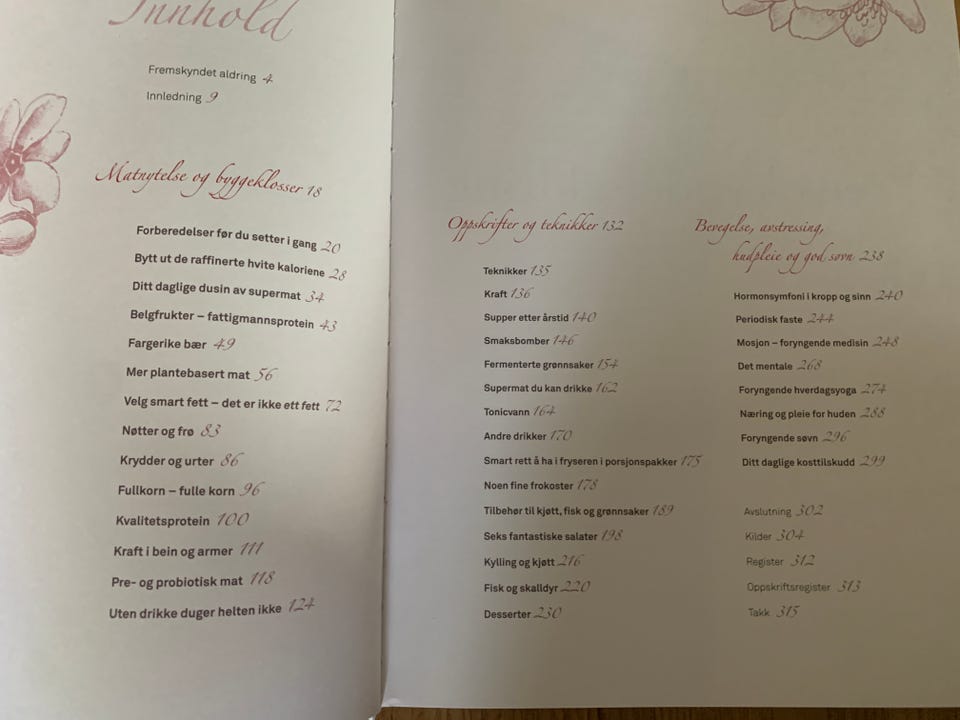 Innhold
Fremskyndet aldring 4
Innledning 9
Matnytelse og byggeklosser 18
Forberedelser før du setter i gang 20
Bytt ut de raffinerte hvite kaloriene 28
Ditt daglige dusin av supermat 34
Belgfrukter – fattigmannsprotein 43
Fargerike bær 49
Mer plantebasert mat 56
Velg smart fett – det er ikke ett fett 72
Nøtter og frø 83
Krydder og urter 86
Fullkorn – fulle korn 96
Kvalitetsprotein 100
Kraft i bein og armer 111
Pre- og probiotisk mat 118
Uten drikke duger helten ikke 124
Oppskrifter og teknikker 132
Teknikker 135
Kraft 136
Supper etter årstid 140
Smaksbomber 146
Fermenterte grønnsaker 154
Supermat du kan drikke 162
Tonicvann 164
Andre drikker 170
Smart rett å ha i fryseren i porsjonspakker 175
Noen fine frokoster 178
Tilbehør til kjøtt, fisk og grønnsaker 189
Seks fantastiske salater 198
Kylling og kjøtt 216
Fisk og skalldyr 220
Desserter 230
Bevegelse, avstressing,
hudpleie og god søvn 238
Hormonsymfoni i kropp og sinn 240
Periodisk faste 244
Mosjon – foryngende medisin 248
Det mentale 268
Foryngende hverdagsyoga 274
Næring og pleie for huden 288
Foryngende søvn 296
Ditt daglige kosttilskudd 299
Avslutning 302
Kilder 304
Register 312
Oppskriftsregister 313
Takk 315